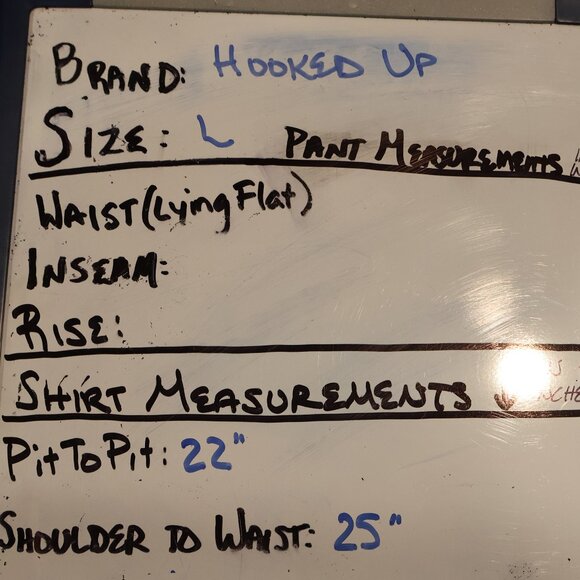 BRAND: HOOKED UP
SIZE: L PANT MEASUREMENTS
WAIST (Lying Flat)
INSEAM:
RISE:
SHIRT MEASUREMENTS
Pit To Pit: 22"
SHOULDER TO WAIST: 25"